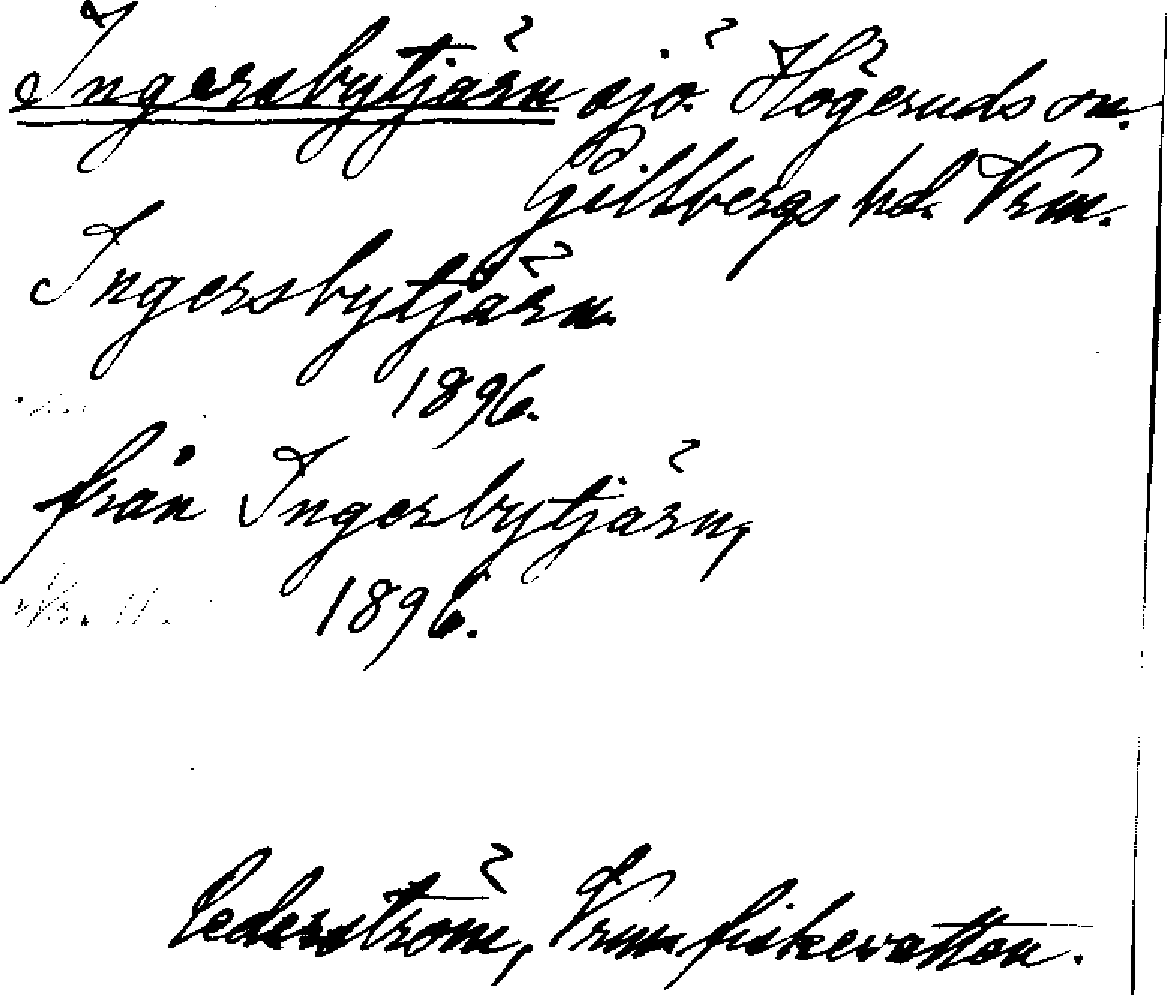 Ingersbytjärn sjö. Högeruds sn.
Gillbergs hd. Vrm.
Ingersbytjärn.
1896.
från Ingersbytjärn,
1896.
Cederström, Vrm. fiskevatten.